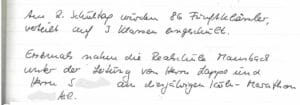 Am 8. Schultag wurden 86 Fünftklässler,
verteilt auf 3 Klassen eingeschult.
Erstmals nahm die Realschule
unter der Leitung von Herrn Lapps und
Herrn S an diesjährigen Marathon
teil.